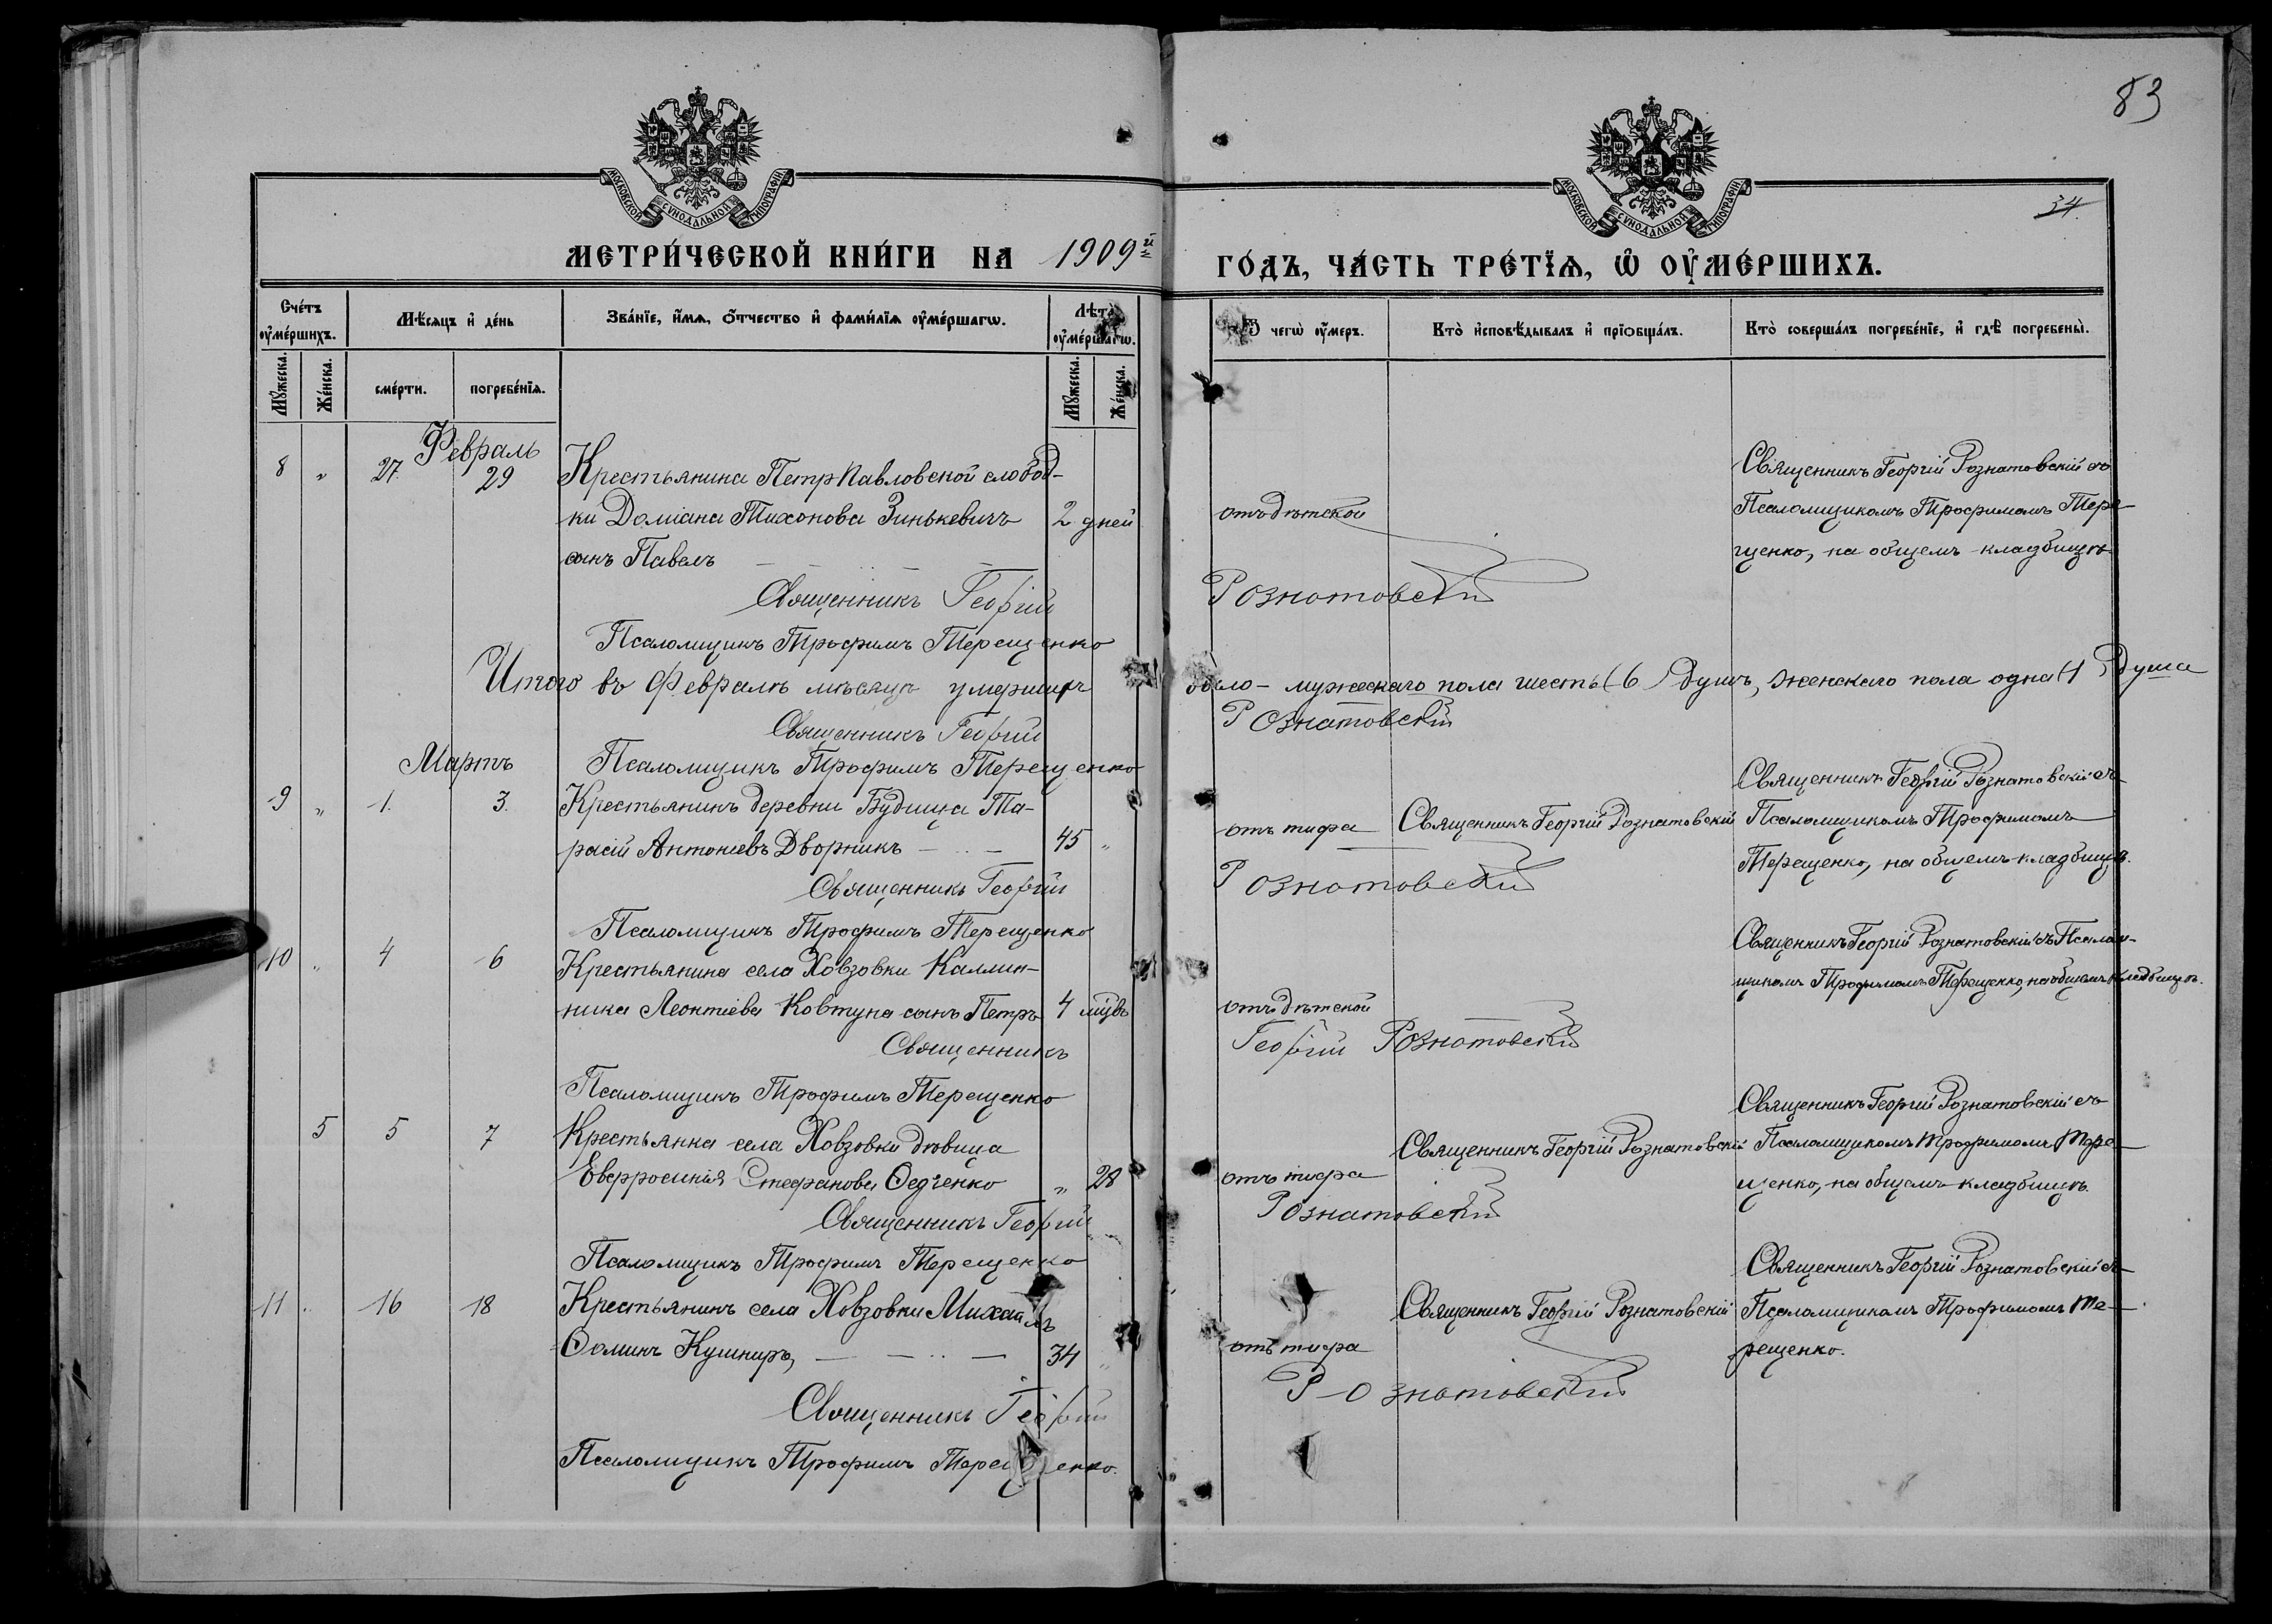 83
34.
МОСКОВСКОЙ СѴНОДАЛЬНОЙ ТИПОГРАФІИ
МОСКОВСКОЙ СѴНОДАЛЬНОЙ ТИПОГРАФІИ
МЕТРИ́ЧЕСКОЙ КНИ́ГИ НА 1909й
ГО́ДЪ, ЧА́СТЬ ТРЕ́ТІѦ, Ѡ҆ ОУ҆МЕ́РШИХЪ.
Сче́тъ оу҆ме́ршихъ.
Мꙋ́жеска.
Же́нска.
Мѣ́сяцъ и҆ де́нь
сме́рти.
погребе́нїѧ.
Зва́нїе, и҆́мѧ, ѻ҆́тчество и҆ фами́лїѧ оу҆ме́ршагѡ.
Лѣ́та оу҆ме́ршагѡ.
Мꙋ́жеска.
Же́нска.
Ѿ чегѡ̀ оу҆́меръ.
Кто̀ и҆сповѣ́дывалъ и҆ прїѻбща́лъ.
Кто̀ соверша́лъ погребе́нїе, и҆ гдѣ̀ погребены̀.
Февраль
8 " 27. 29 Крестьянина Петр Павловской слобод-
ки Доміана Тихонова Зинькевичъ 2 дней
сынъ Павелъ
отъ дѣтской
Священникъ Георгій Рознатовскій съ
Псаломщикомъ Трофимомъ Тере-
щенко, на общемъ кладбищѣ
Священникъ Георгій Рознатовскій
Псаломщикъ Трофимъ Терещенко
Итого въ Февралѣ мѣсяцѣ умершихъ было - мужескаго пола шесть (6) душъ, женскаго пола одна (1) душа
Священникъ Георгій Рознатовскій
Псаломщикъ Трофимъ Терещенко
Мартъ
9 " 1. 3. Крестьянинъ деревни Будища Та-
расій Антоніевъ Дворникъ 45 "
отъ тифа
Священникъ Георгій Рознатовскій
Священникъ Георгій Рознатовскій съ
Псаломщикомъ Трофимомъ
Терещенко, на общемъ кладбищѣ.
Священникъ Георгій Рознатовскій
Псаломщикъ Трофимъ Терещенко
10 " 4 6 Крестьянина села Ховзовки Каллин-
ника Леонтіева Ковтуна сынъ Петръ 4 мцвъ
отъ дѣтской
Священникъ Георгій Рознатовскій съ Псалом-
щикомъ Трофимомъ Терещенко, на общемъ кладбищѣ.
Священникъ Георгій Рознатовскій
Псаломщикъ Трофимъ Терещенко
5 5 7 Крестьянка села Ховзовки дѣвица
Евфросинія Стефанова Федченко " 28
отъ тифа
Священникъ Георгій Рознатовскій
Священникъ Георгій Рознатовскій съ
Псаломщикомъ Трофимомъ Тере-
щенко, на общемъ кладбищѣ.
Священникъ Георгій Рознатовскій
Псаломщикъ Трофимъ Терещенко
11 " 16 18 Крестьянинъ села Ховзовки Михаилъ
Ѳоминъ Кушниръ, 34 "
отъ тифа
Священникъ Георгій Рознатовскій
Священникъ Георгій Рознатовскій съ
Псаломщикомъ Трофимомъ Те-
рещенко.
Священникъ Георгій Рознатовскій
Псаломщикъ Трофимъ Терещенко.